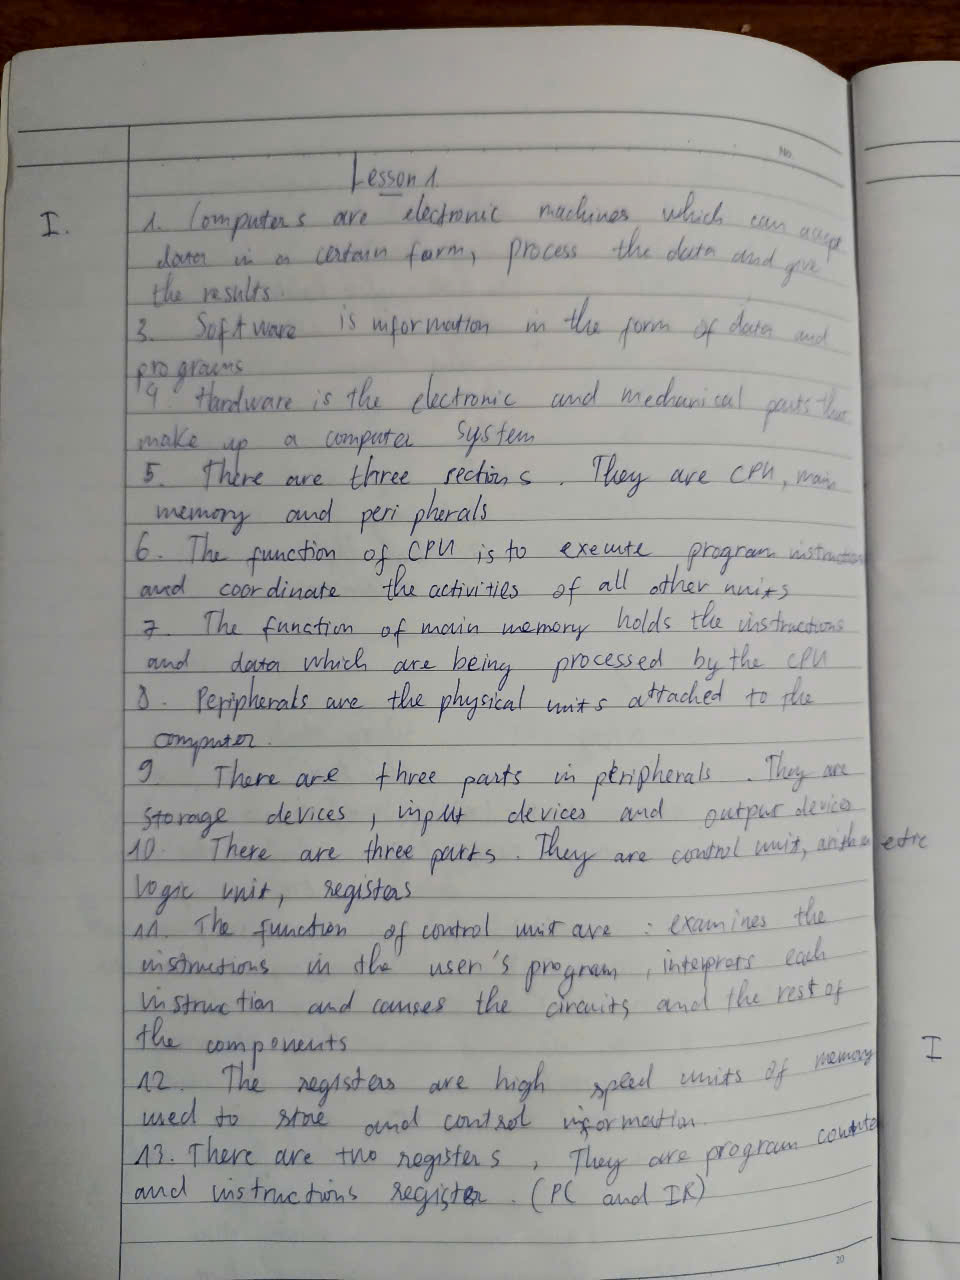 No.
Lesson 1.
I.
1. Computers are electronic machines which can accept
data in a certain form, process the data and give
the results.
3. Software is information in the form of data and
programs
4. Hardware is the electronic and mechanical parts that
make up a computer system
5. There are three sections. They are CPU, main
memory and peripherals
6. The function of CPU is to execute program instruction
and coordinate the activities of all other units
7. The function of main memory holds the instructions
and data which are being processed by the CPU
8. Peripherals are the physical units attached to the
computer.
9. There are three parts in peripherals. They are
storage devices, input devices and output devices
10. There are three parts. They are control unit, arithmetic
logic unit, registers
11. The function of control unit are : examines the
instructions in the user's program, interprets each
instruction and causes the circuits and the rest of
the components
12. The registers are high speed units of memory
used to store and control information.
13. There are two registers, They are program counter
and instructions register. (PC and IR)
I
20